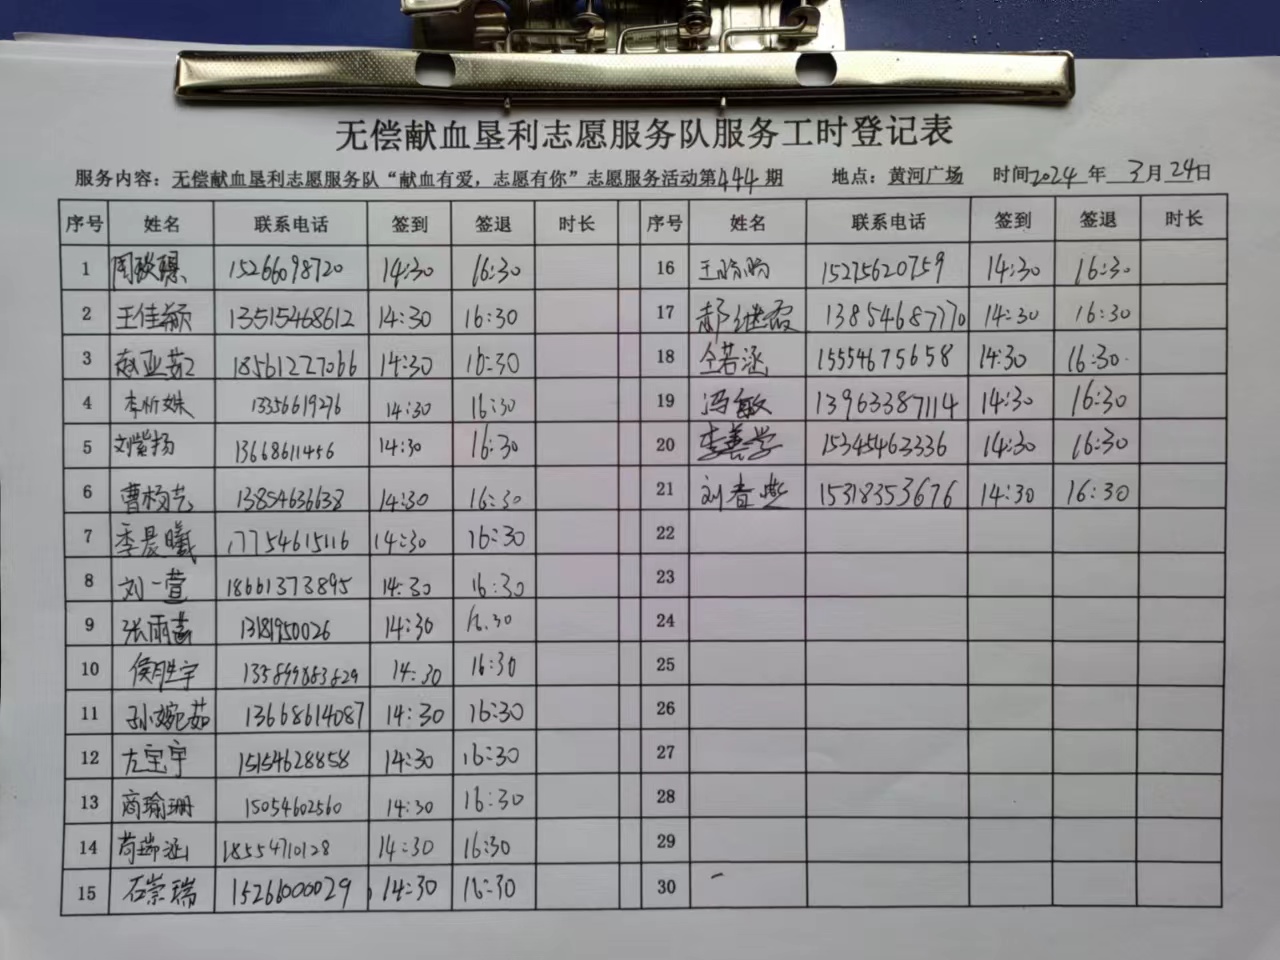 无偿献血垦利志愿服务队服务工时登记表
服务内容：无偿献血垦利志愿服务队“献血有爱，志愿有你”志愿服务活动第444期 地点：黄河广场 时间2024年 3月24日
序号 姓名 联系电话 签到 签退 时长 序号 姓名 联系电话 签到 签退 时长
1 15266098720 14:30 16:30 16 15275620759 14:30 16:30
2 王佳颖 13515468612 14:30 16:30 17 郝继霞 13854687770 14:30 16:30
3 赵亚茹 18561227066 14:30 16:30 18 仝若涵 15554675658 14:30 16:30
4 李忻姝 13356619276 14:30 16:30 19 冯敏 13963387114 14:30 16:30
5 刘紫扬 13668611456 14:30 16:30 20 李善学 15345463336 14:30 16:30
6 曹杨艺 13854636638 14:30 16:30 21 刘春燕 15318353676 14:30 16:30
7 季晨曦 17754615116 14:30 16:30 22
8 刘一萱 18661373895 14:30 16:30 23
9 张雨 14:30 16:30 24
10 侯胜宇 14:30 16:30 25
11 孙婉茹 13668614087 14:30 16:30 26
12 左宝宇 15154628858 14:30 16:30 27
13 商瑜珊 15054602560 14:30 16:30 28
14 苟瑞涵 18554710128 14:30 16:30 29
15 石崇瑞 15266000029 14:30 16:30 30